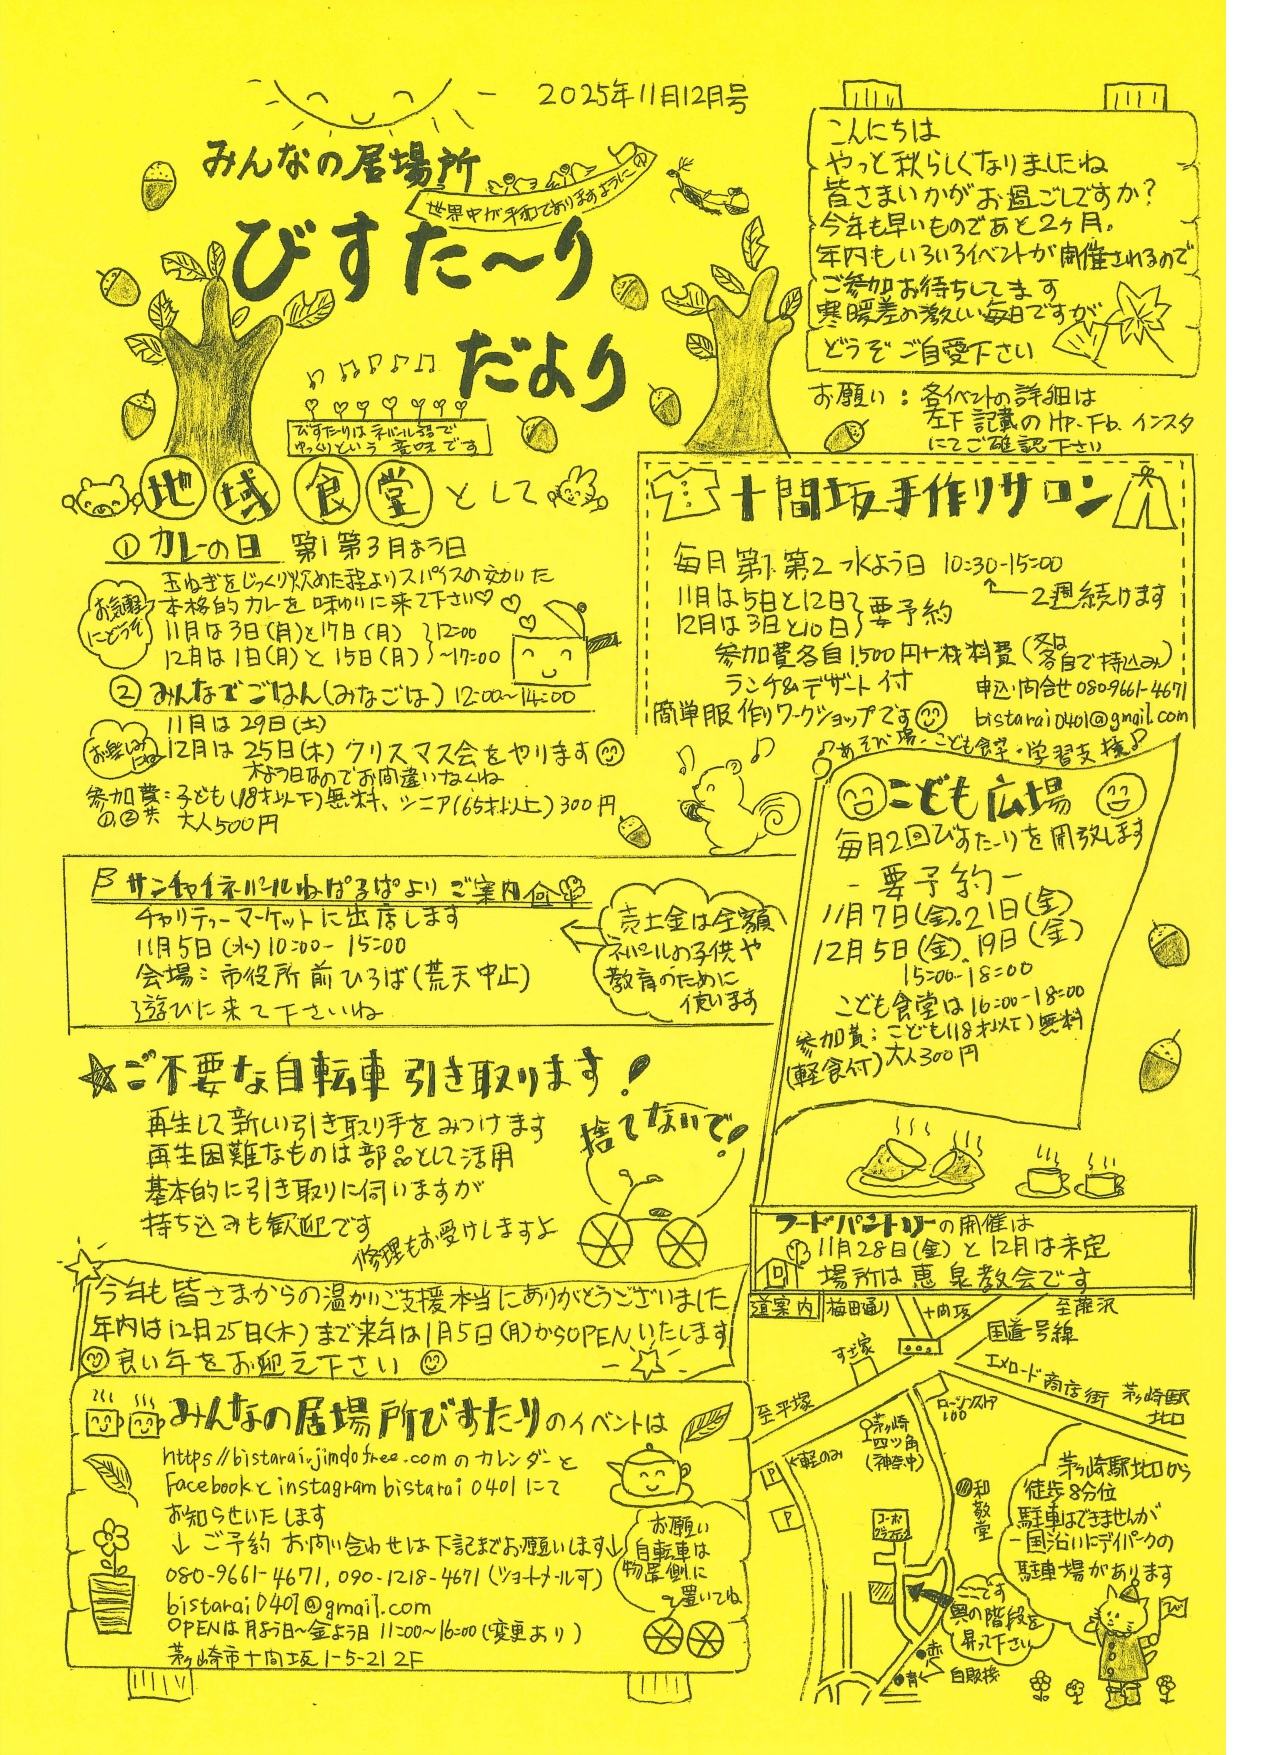 2025年11月12月号
みんなの居場所
世界中が平和でありますように
びすた〜り
だより
びすたりはネパール語で
ゆっくりという意味です
こんにちは
やっと秋らしくなりましたね
皆さまいかがお過ごしですか?
今年も早いものであと2ヶ月。
年内もいろいろイベントが開催されるので
ご参加お待ちしてます
寒暖差の激しい毎日ですが
どうぞご自愛下さい
お願い：各イベントの詳細は
左下記載のHP・Fb、インスタ
にてご確認下さい
地域食堂として
① カレーの日 第1第3月よう日
お気軽にどうぞ
玉ねぎをじっくり炒めた程よりスパイスの効いた
本格的カレーを味わりに来て下さい♡
11月は3日(月)と17日(月)
12月は1日(月)と15日(月)
12:00
〜17:00
② みんなでごはん(みなごは) 12:00〜14:00
お楽しみにね
11月は29日(土)
12月は25日(木) クリスマス会をやります
木よう日なのでお間違いなくね
参加費：子ども(18才以下)無料、シニア(65才以上)300円
①,②共 大人500円
十間坂手作りサロン
毎月第1第2水よう日 10:30-15:00
11月は5日と12日
12月は3日と10日
要予約
←2週続けます
参加費各自1,500円+材料費(又は各自で持込み)
ランチ&デザート付
申込・問合せ080-9661-4671
簡単服作りワークショップです
bistarai0401@gmail.com
♪あそび場・こども食堂・学習支援♪
こども広場
毎月2回びすた〜りを開放します
-要予約-
11月7日(金)。21日(金)
12月5日(金)。19日(金)
15:00-18:00
こども食堂は16:00-18:00
参加費：こども(18才以下)無料
(軽食付)大人300円
サンチャイネパールねぱるぱよりご案内
チャリティーマーケットに出店します
11月5日(水)10:00-15:00
会場：市役所前ひろば(荒天中止)
遊びに来て下さいね
売上金は全額
ネパールの子供や
教育のために
使います
★ご不要な自転車引き取ります！
再生して新しい引き取り手をみつけます
再生困難なものは部品として活用
基本的に引き取りに伺いますが
持ち込みも歓迎です
修理もお受けしますよ
捨てないで！
フードパントリーの開催は
11月28日(金)と12月は未定
場所は恵泉教会です
今年も皆さまからの温かいご支援本当にありがとうございました
年内は12月25日(木)まで来年は1月5日(月)からOPENいたします
良い年をお迎え下さい
みんなの居場所びすた〜りのイベントは
https://bistarai.jimdofree.comのカレンダーと
Facebookとinstagram bistarai0401にて
お知らせいたします
↓ご予約お問い合わせは下記までお願いします↓
080-9661-4671, 090-1218-4671(ショートメール可)
bistarai0401@gmail.com
OPENは月よう日〜金よう日 11:00〜16:00(変更あり)
茅ヶ崎市十間坂1-5-21 2F
お願い
自転車は
物置側に
置いてね
道案内
梅田通り
十間坂
至藤沢
国道一号線
すご家
エメロード商店街
茅ヶ崎駅
北口
ローソンストア
100
至平塚
茅ヶ崎
四ツ角
(神奈中)
軽のみ
P
P
和敬堂
コーポ
茅ヶ崎駅北口から
徒歩8分位
駐車はできませんが
一国沿いにデイパークの
駐車場があります
ここです
奥の階段を
昇って下さい
赤
青
自販機
び